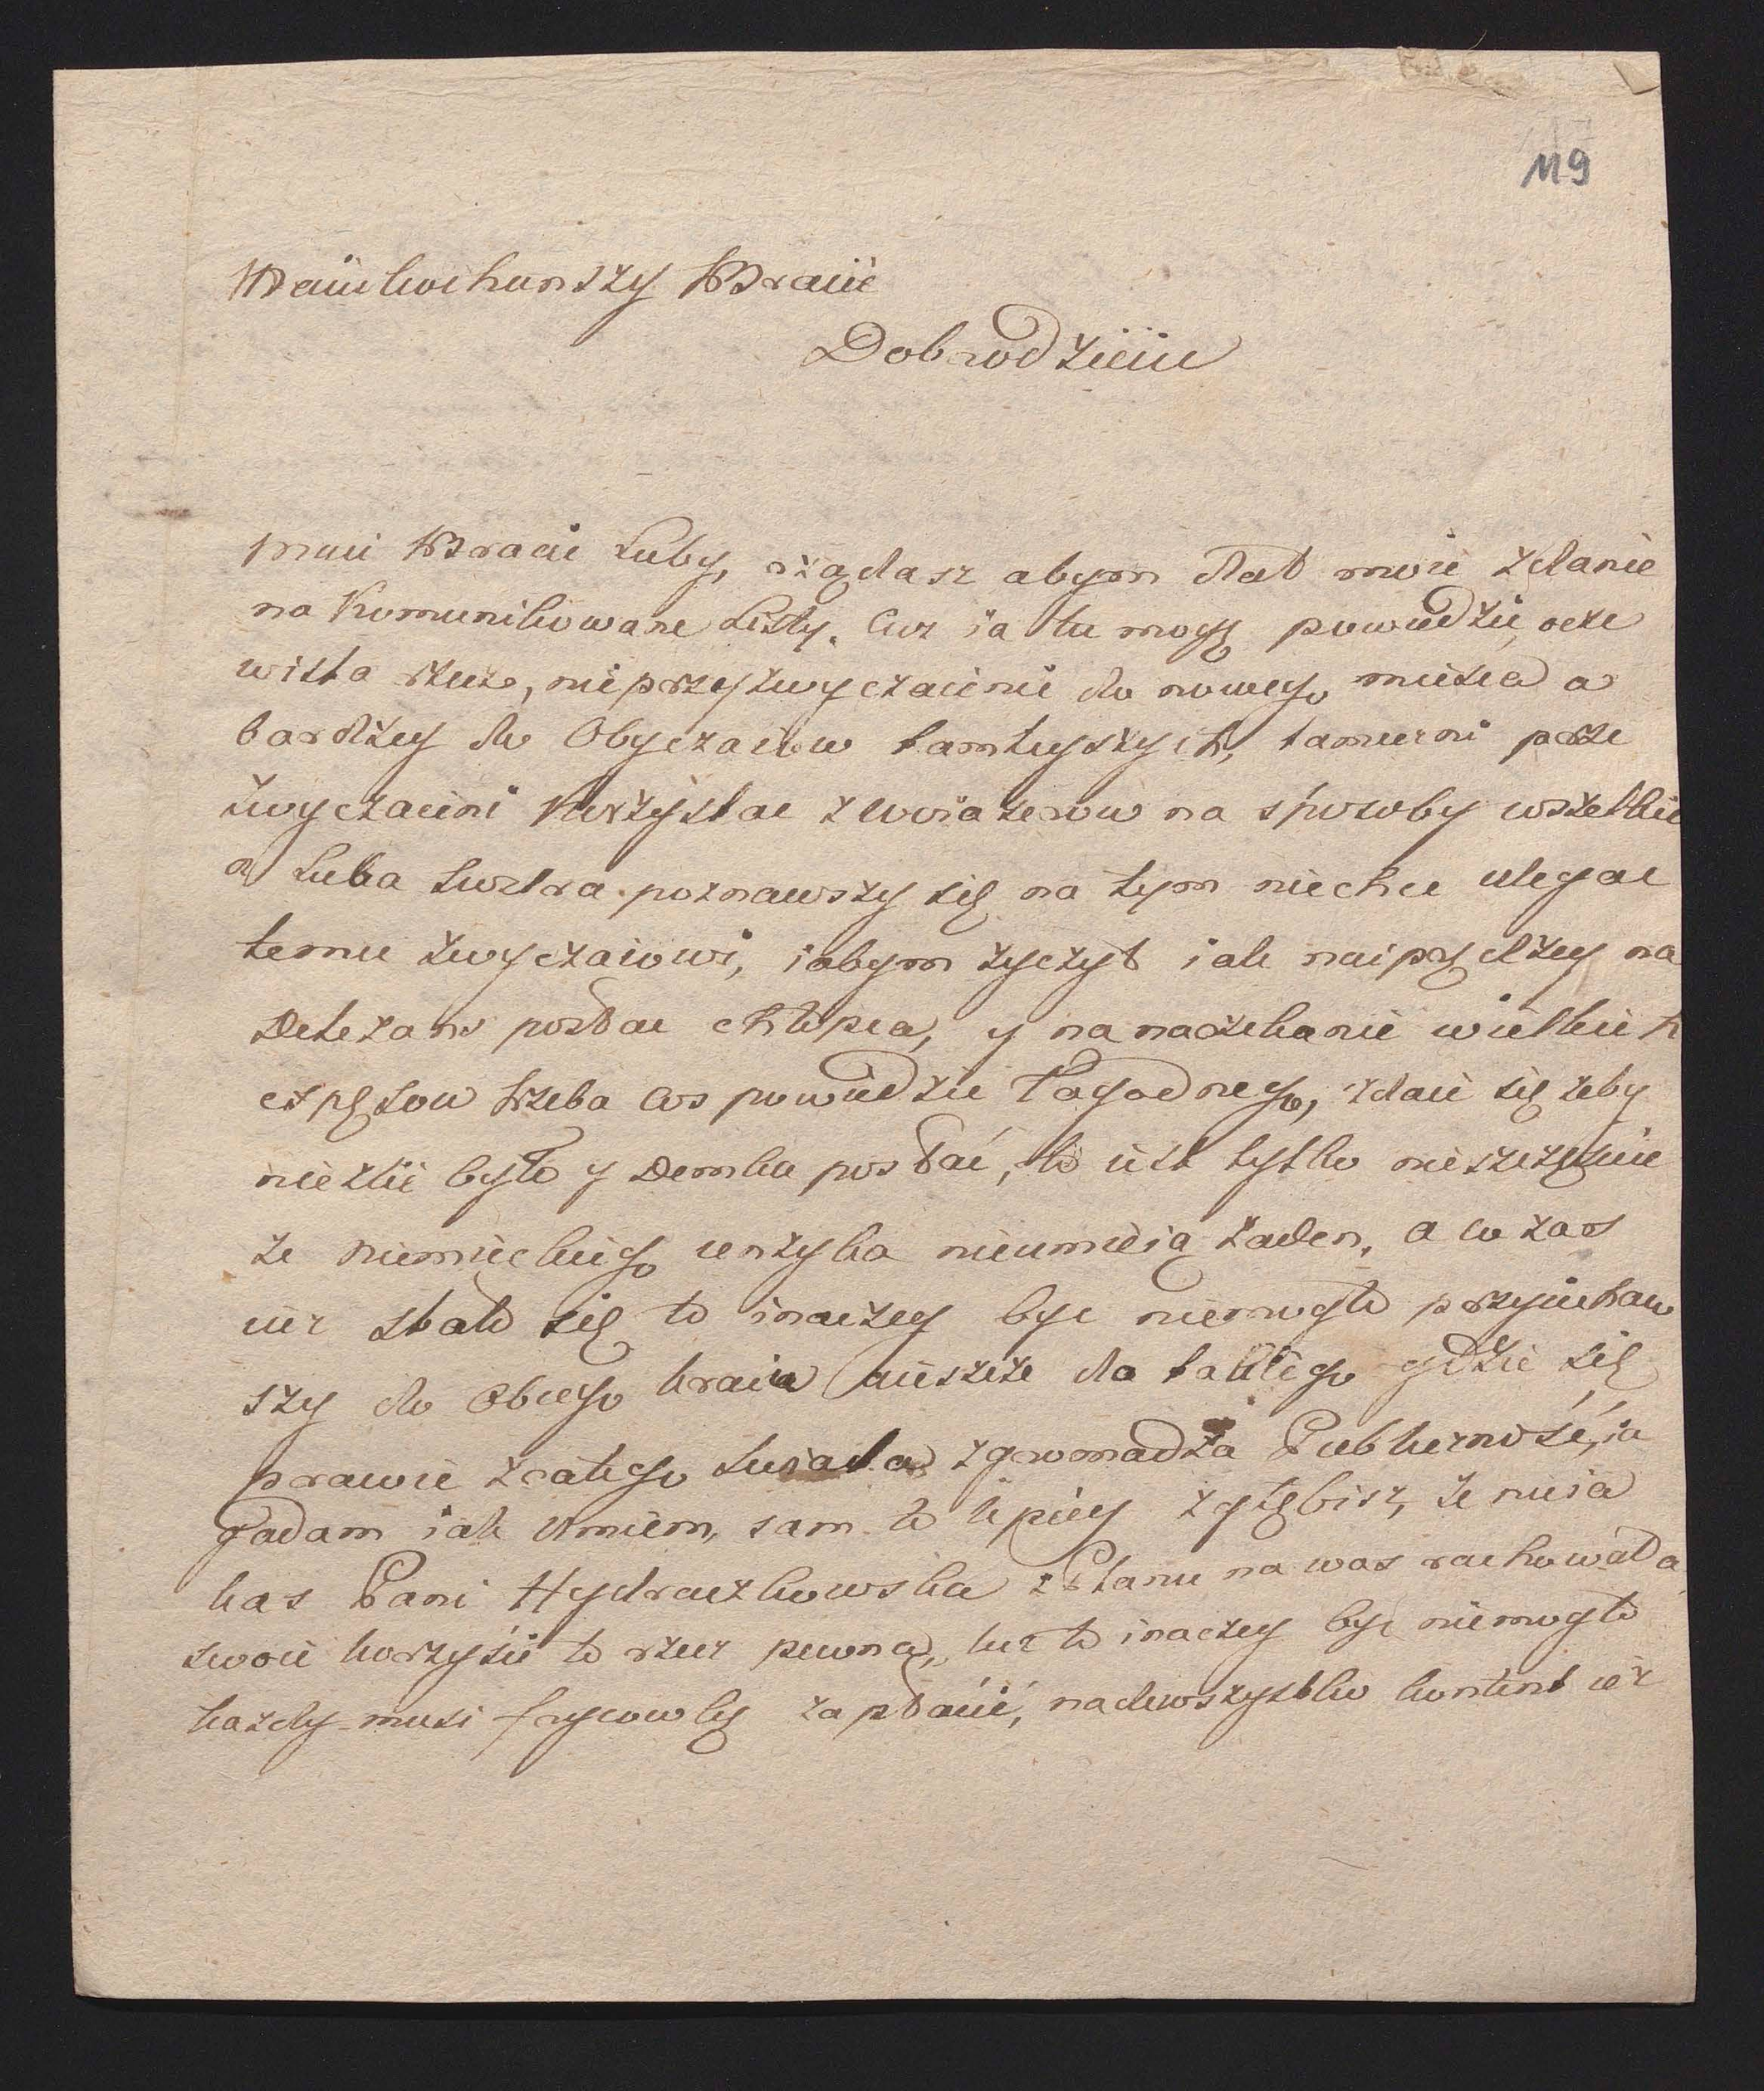 119
Naiukochanszy Bracie
Dobrodzieiu
moi Bracie Luby, rządasz abym dał moie zdanie
na Komunikowane Listy. Coz ia tu mogę powiedzic, ocze
wista rzecz, nieprzyzwyczaienie do nowego mieisca a
bardziey do Obyczaiow tamteyszych, tameczni prze
zwyczaieni Korzystac z woiazerow na sposoby wszelkie
a Luba Siostra poznawszy się na tym niechce ulegac
temu zwyczaiowi, iabym zyczył iak naiprędzey na
Delezans posłac chłopca, y na narzekanie wielkich
expęsow trzeba cos powiedzic Łagodnego, zdaie się zeby
niezle było y Demka posłać, to iest tylko nieszczęscie
ze niemieckiego ięnzyka nieumieią zaden, a co zas
iuz stało się to inaczey byc niemogło przyiechaw
szy do Obcego kraiu ieszcze do takiego gdzie się
prawie zcałego swiata zgromadza Publicznosć, ia
gadam iak umiem, sam to lepiey zgłębisz, ze mieia
kas Pani Hydraczkowska z Planu na was rachowała
swoie korzysci to rzecz pewna, lecz to inaczey byc niemogło
kazdy musi frycowkę zapłacić, nadewszystko kontent iez